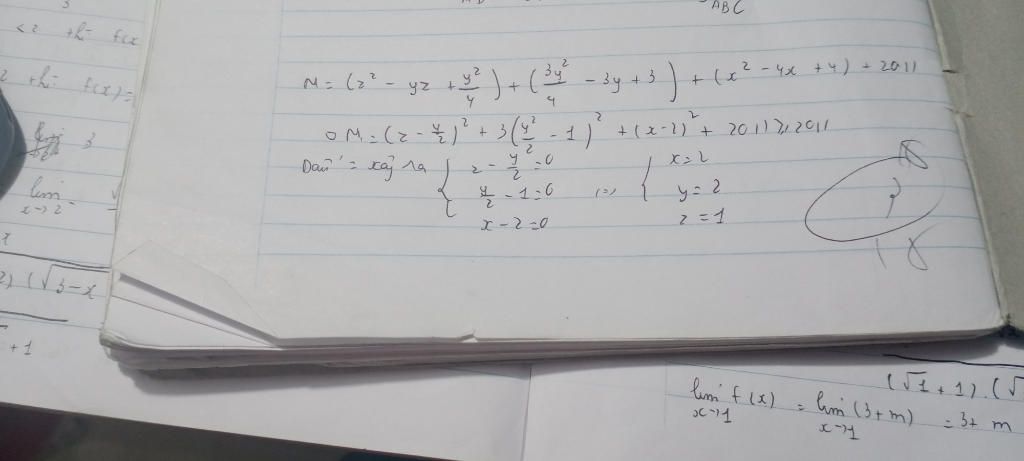 ABC
M = (z² - yz + y²/4) + (3y²/4 - 3y + 3) + (x² - 4x + 4) + 2011
M = (z - y/2)² + 3(y²/2 - 1)² + (x-2)² + 2011 ≥ 2011
Dấu '=' xảy ra { z - y/2 = 0 (=) { x = 2
y/2 - 1 = 0 y = 2
x - 2 = 0 z = 1
?
18
<2 +h= f(x
2 +h= f(x) =
3
lim
x→2
2) (√3-x
+ 1
(√1 + 1).(√
lim f(x) = lim (3+m) = 3+ m
x→1 x→1